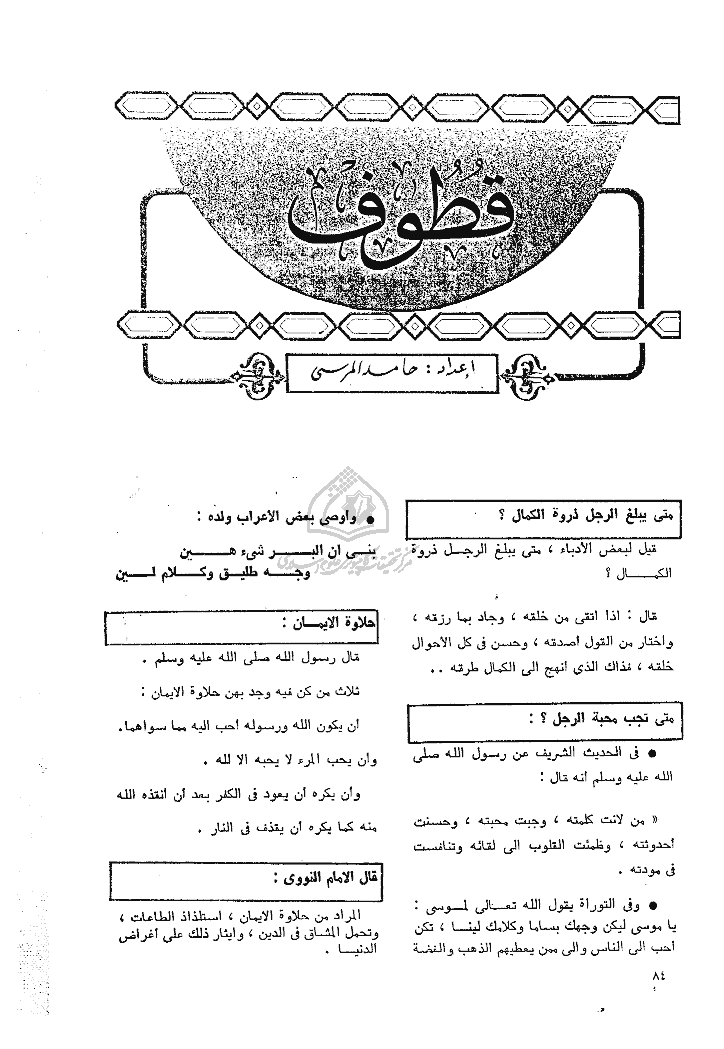 قُطُوف
إعداد : حامد المرسى
متى يبلغ الرجل ذروة الكمال ؟
قيل لبعض الأدباء ، متى يبلغ الرجـل ذروة
الكمـــال ؟
قال : اذا اتقى من خلقه ، وجاد بما رزقه ،
واختار من القول أصدقه ، وحسن فى كل الأحوال
خلقه ، فذاك الذي أنهج الى الكمال طرقه ..
متى تجب محبة الرجل ؟ :
● فى الحديث الشريف عن رسول الله صلى
الله عليه وسلم أنه قال :
« من لانت كلمته ، وجبت محبته ، وحسنت
أحدوثته ، وظمئت القلوب الى لقائه وتنافست
فى مودته .
● وفى التوراة يقول الله تعـالى لمـوسى :
يا موسى ليكن وجهك بساما وكلامك لينـا ، تكن
أحب الى الناس والى ممن يعطيهم الذهب والفضة
● وأوصى بعض الأعراب ولده :
بنـى ان البـــر شىء هـــين
وجـه طليـق وكـلام لـين
حلاوة الايمـان :
قال رسول الله صلى الله عليه وسلم .
ثلاث من كن فيه وجد بهن حلاوة الايمان :
أن يكون الله ورسوله أحب اليه مما سواهما.
وأن يحب المرء لا يحبه الا لله .
وأن يكره أن يعود فى الكفر بعد أن أنقذه الله
منه كما يكره أن يقذف فى النار .
قال الامام النووى :
المراد من حلاوة الايمان ، استلذاذ الطاعات ،
وتحمل المشاق فى الدين ، وايثار ذلك على أغراض
الدنيـا .
٨٤